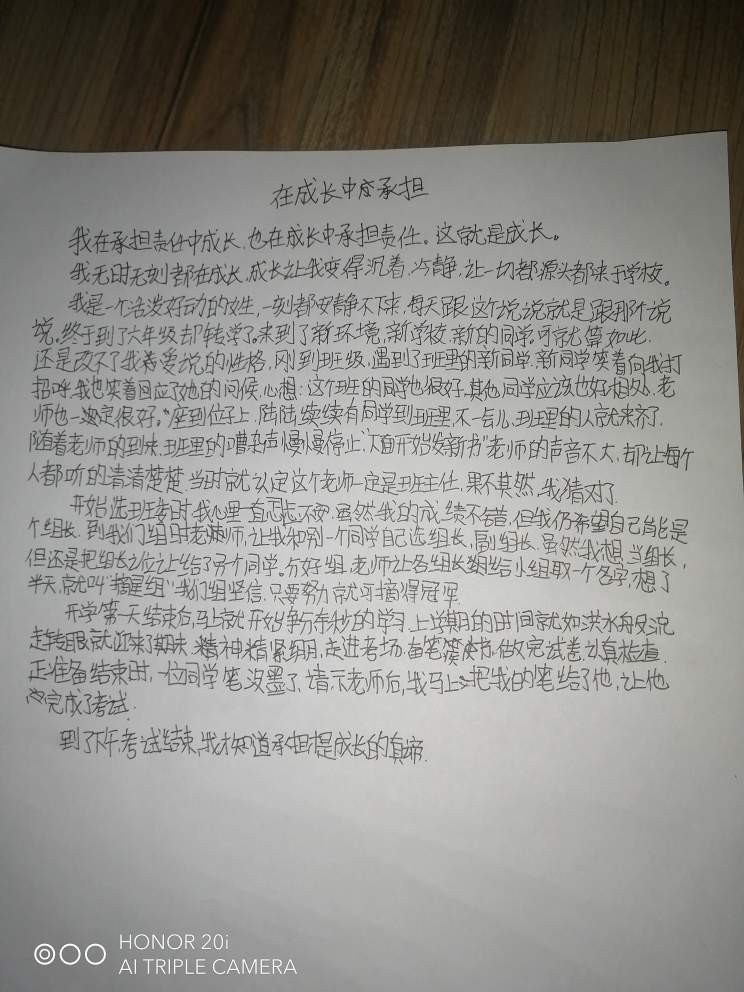 在成长中承担
我在承担责任中成长,也在成长中承担责任。这就是成长。
我无时无刻都在成长,成长让我变得沉着,冷静,让一切都源头都来于学校。
我是一个活泼好动的女生,一刻都安静不下来,每天跟这个说说就是跟那个说
说。终于到了六年级却转学了。来到了新环境,新学校,新的同学,可就算如此,
还是改不了我爱说的性格,刚到班级,遇到了班里的新同学,新同学笑着向我打
招呼,我也笑着回应了她的问候,心想:“这个班的同学也很好,其他同学应该也好相处,老
师也一定很好。”座到位子上,陆陆续续有同学到班里,不一会儿,班里的人就来齐了,
随着老师的到来,班里的嘈杂声慢慢停止,“下面开始发新书”老师的声音不大,却让每个
人都听的清清楚楚,当时就认定这个老师一定是班主任,果不其然,我猜对了.
开始选班委时,我心里一直忐忑不安,虽然我的成绩不错,但我仍希望自己能是
个组长,到我们组时老师,让我和别一个同学自己选组长,副组长,虽然我想当组长,
但还是把组长之位让给了另个同学。分好组,老师让各组长组给小组取一个名字,想了
半天,就叫“摘星组”我们组坚信,只要努力就可摘得冠军.
开学第一天结束后,马上就开始争分夺秒的学习,上学期的时间就如洪水般没
走转眼就迎来了期末,精神紧绷,走进考场,奋笔疾书,做完试卷,认真检查.
正准备结束时,一位同学笔没墨了,请示老师后,我马上把我的笔给了他,让他
完成了考试.
到了下午,考试结束,我才知道承担提成长的真谛.
HONOR 20i
AI TRIPLE CAMERA